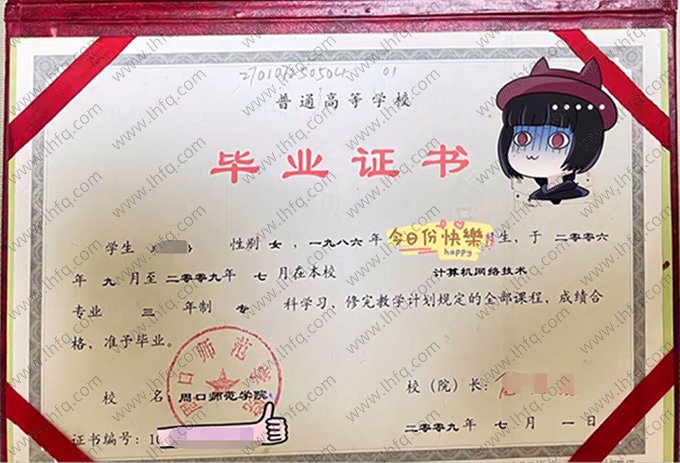 27010725050501 01
普通高等学校
毕业证书
学生 性别 女，一九八六年 今日份快樂 happy 生，于 二〇〇六
年 九 月至 二〇〇九年 七 月在本校 计算机网络技术
专业 三 年制 专 科学习，修完教学计划规定的全部课程，成绩合
格，准予毕业。
校 名 周口师范学院 校（院）长：
证书编号：10 二〇〇九年 七 月 一 日
www.lhfq.com